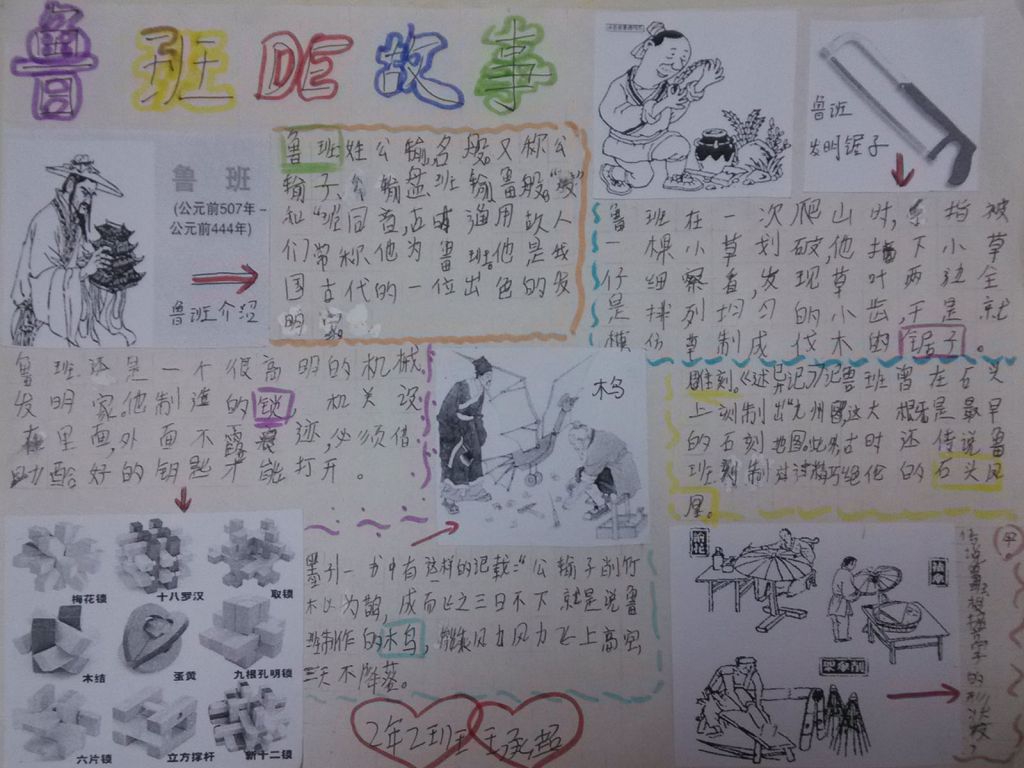 鲁班DE故事
鲁班
(公元前507年-
公元前444年)
鲁班介绍
鲁班姓公输名般又称公
输子、公输盘班输鲁般"般"
和"班同音,古时通用故人
们常称他为鲁班他是我
国古代的一位出色的发
明家
鲁班
发明锯子
鲁班在一次爬山时,手指被
一棵小草划破,他摘下小草
仔细察看,发现草叶两边全
是排列均匀的小齿,于是就
模仿草制成伐木的锯子。
鲁班还是一个很高明的机械
发明家。他制造的锁,机关设
在里面,外面不露痕迹,必须借
助配好的钥匙才能打开。
木鸟
雕刻。《述异记》记鲁班曾在石头
上刻制出"九州图,这大概是最早
的石刻地图。此外,古时还传说鲁
班刻制过精巧绝伦的石头凤
凰。
墨子一书中有这样的记载:"公输子削竹
木以为鹊,成而飞之三日不下就是说鲁
班制作的木鸟,能乘风力风力飞上高空
三天不降落。
梅花锁
十八罗汉
取锁
木结
蛋黄
九根孔明锁
六片锁
立方撑杆
新十二锁
架伞
2年2班